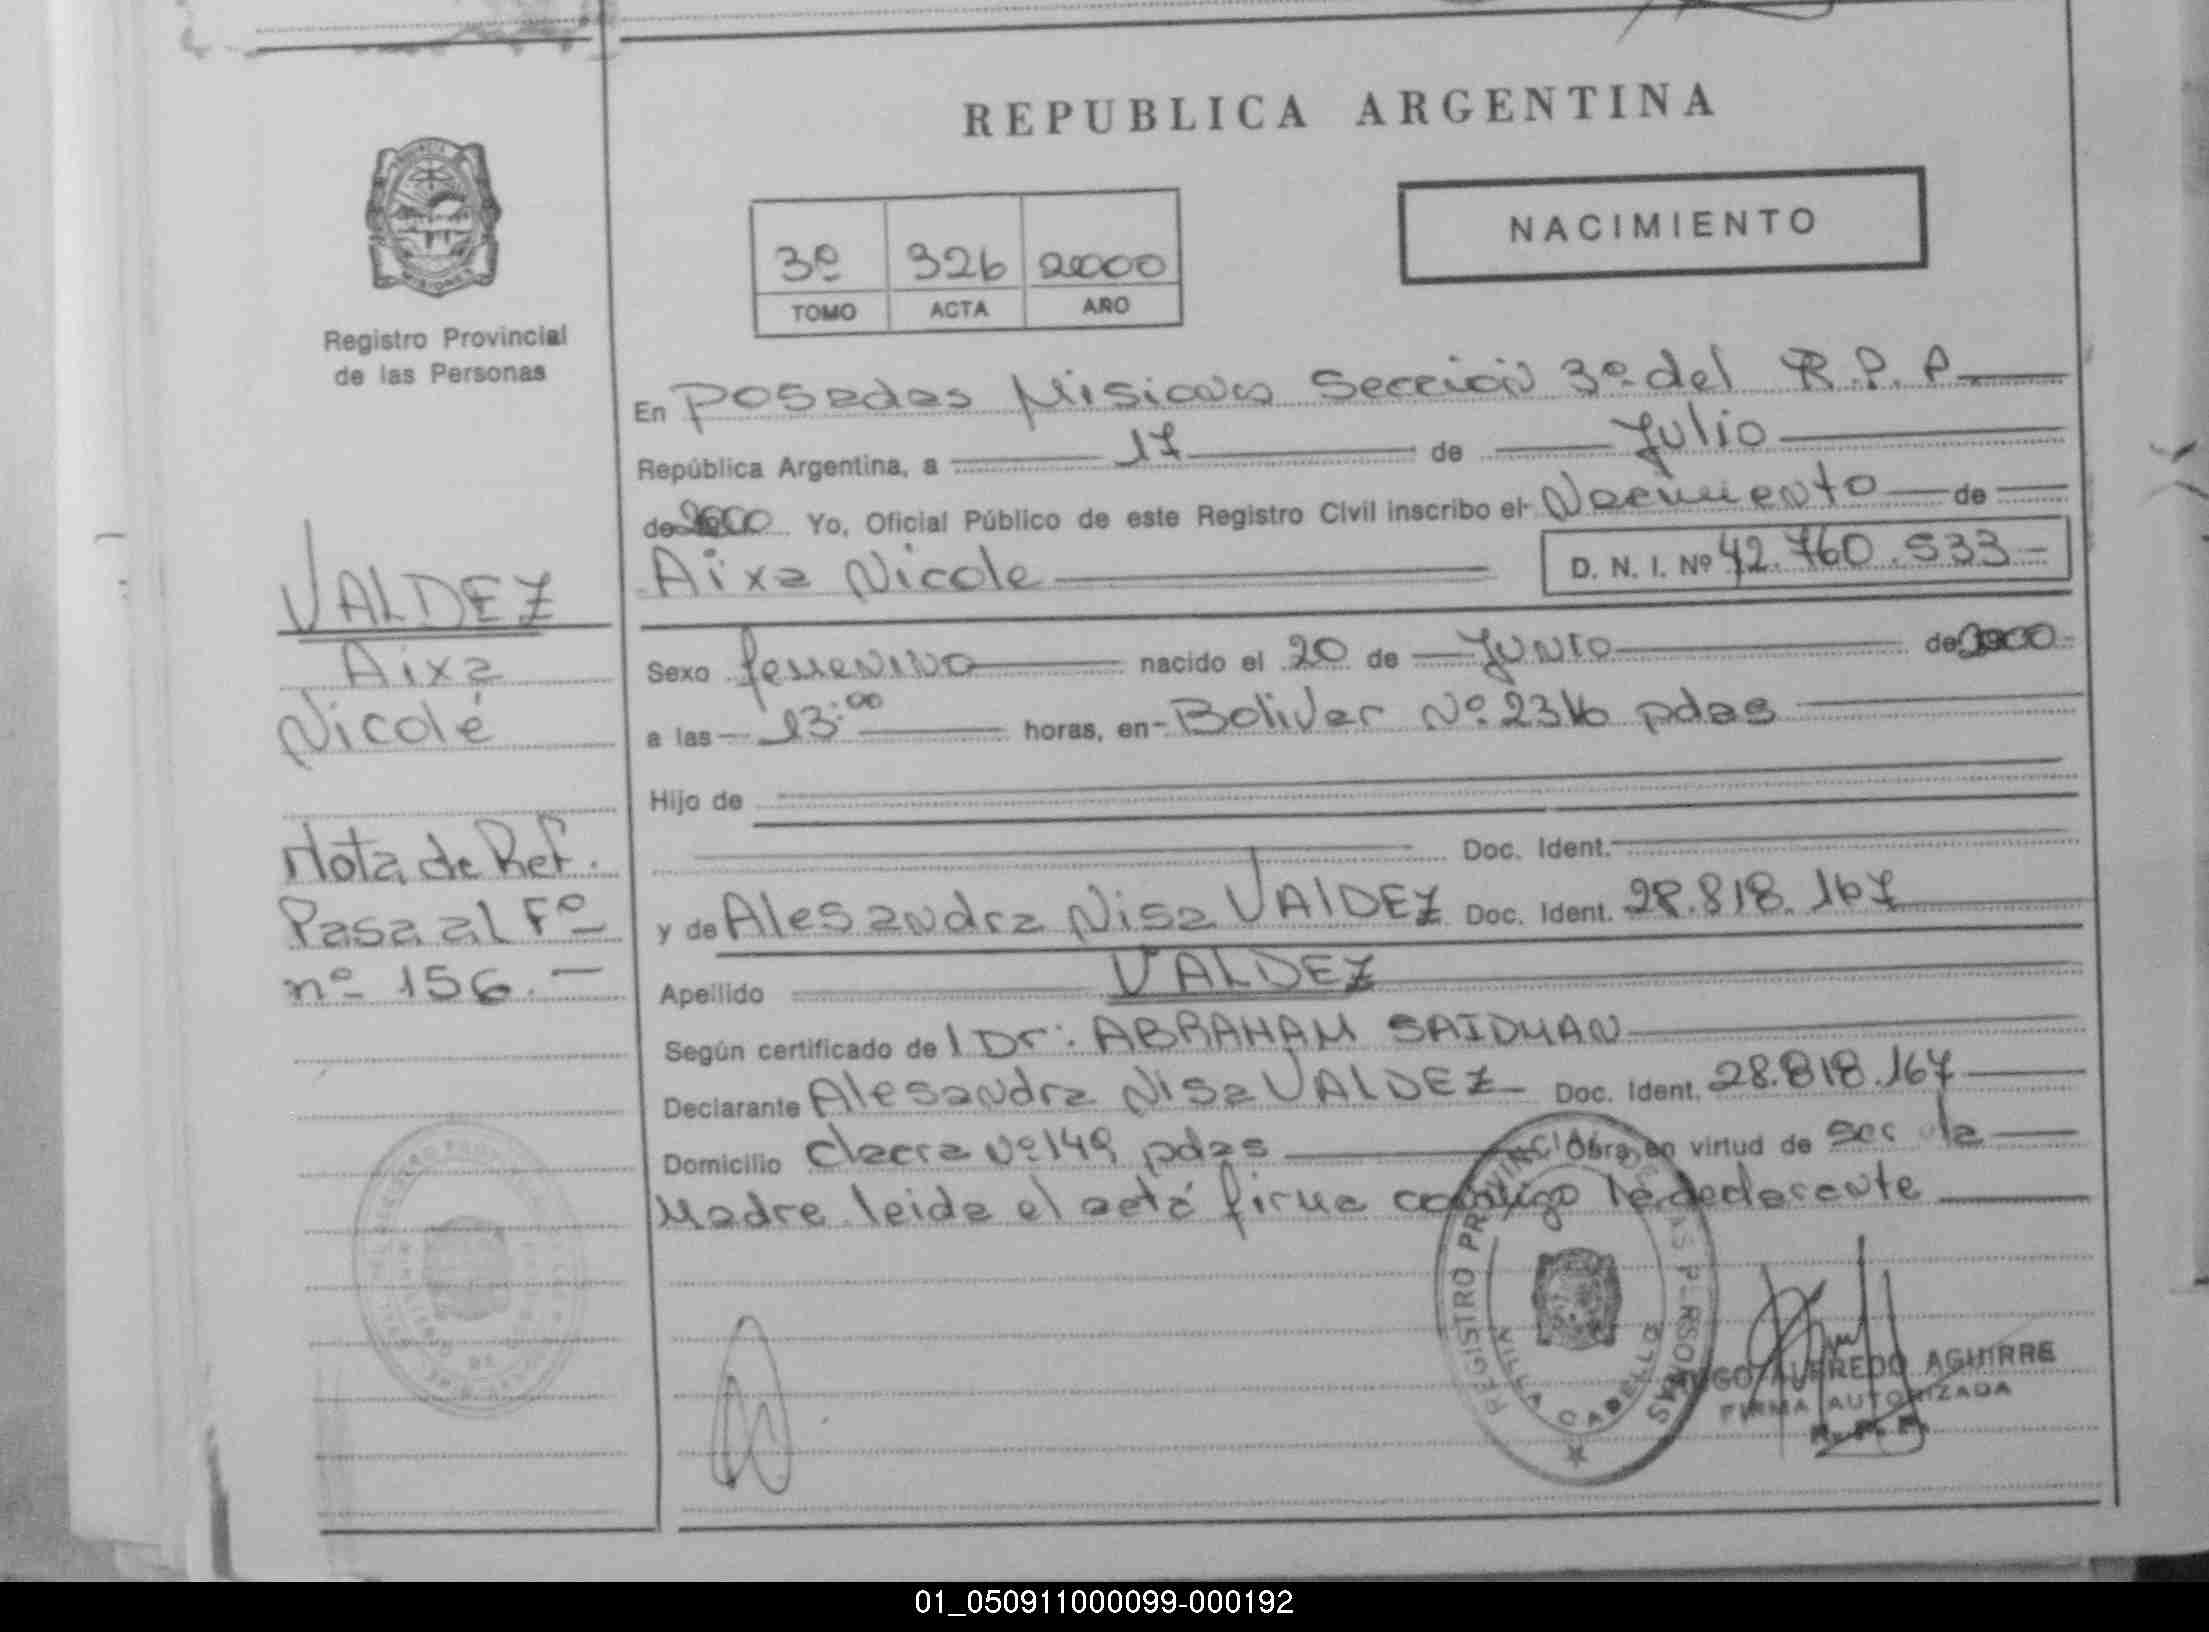 REPUBLICA ARGENTINA
NACIMIENTO
3º 326 2000
TOMO ACTA AÑO
Registro Provincial
de las Personas
En Posadas Misiones Sección 3º del R.P.P
República Argentina, a 17 de Julio
de 2000 Yo, Oficial Público de este Registro Civil inscribo el Nacimiento de
Aixa Nicole D. N. I. Nº 42.760.533
VALDEZ
Aixa
Nicolé
Sexo femenino nacido el 20 de Junio de 2000
a las 13:00 horas, en Bolivar Nº 2316 pdas
Hijo de
Doc. Ident.
Nota de Ref.
Pasa al Fº
nº 156.
y de Alesandra Nisa VAlDEZ Doc. Ident. 28.818.167
Apellido VALDEZ
Según certificado de l Dr: ABRAHAM SAIDMAN
Declarante Alesandra Nisa VALDEZ Doc. Ident. 28.818.167
Domicilio chacra Nº 149 pdas Obra en virtud de ser la
Madre leida el acta firma conmigo la declarante
REGISTRO PROVINCIAL DE LAS PERSONAS
VILLA CABELLO
HUGO ALFREDO AGUIRRE
FIRMA AUTORIZADA
R. P. P.
01_050911000099-000192